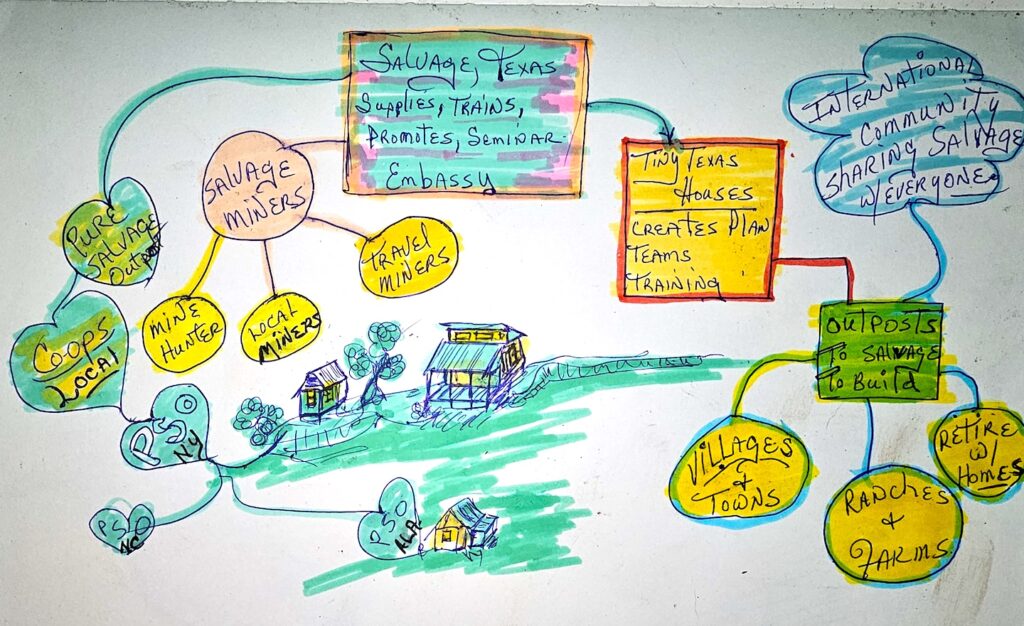 Salvage, Texas
Supplies, Trains,
Promotes, Seminar-
Embassy
International
Community
Sharing Salvage
w/Everyone.
Tiny Texas
Houses
Creates Plan
Teams
Training
Salvage
Miners
Mine
Hunter
Local
Miners
Travel
Miners
Pure
Salvage
Outpost
Co-ops
Local
PSO
NY
PSO
NC
PSO
ALA
Outposts
To Salvage
To Build
Villages
&
Towns
Ranches
&
Farms
Retire
w/
Homes